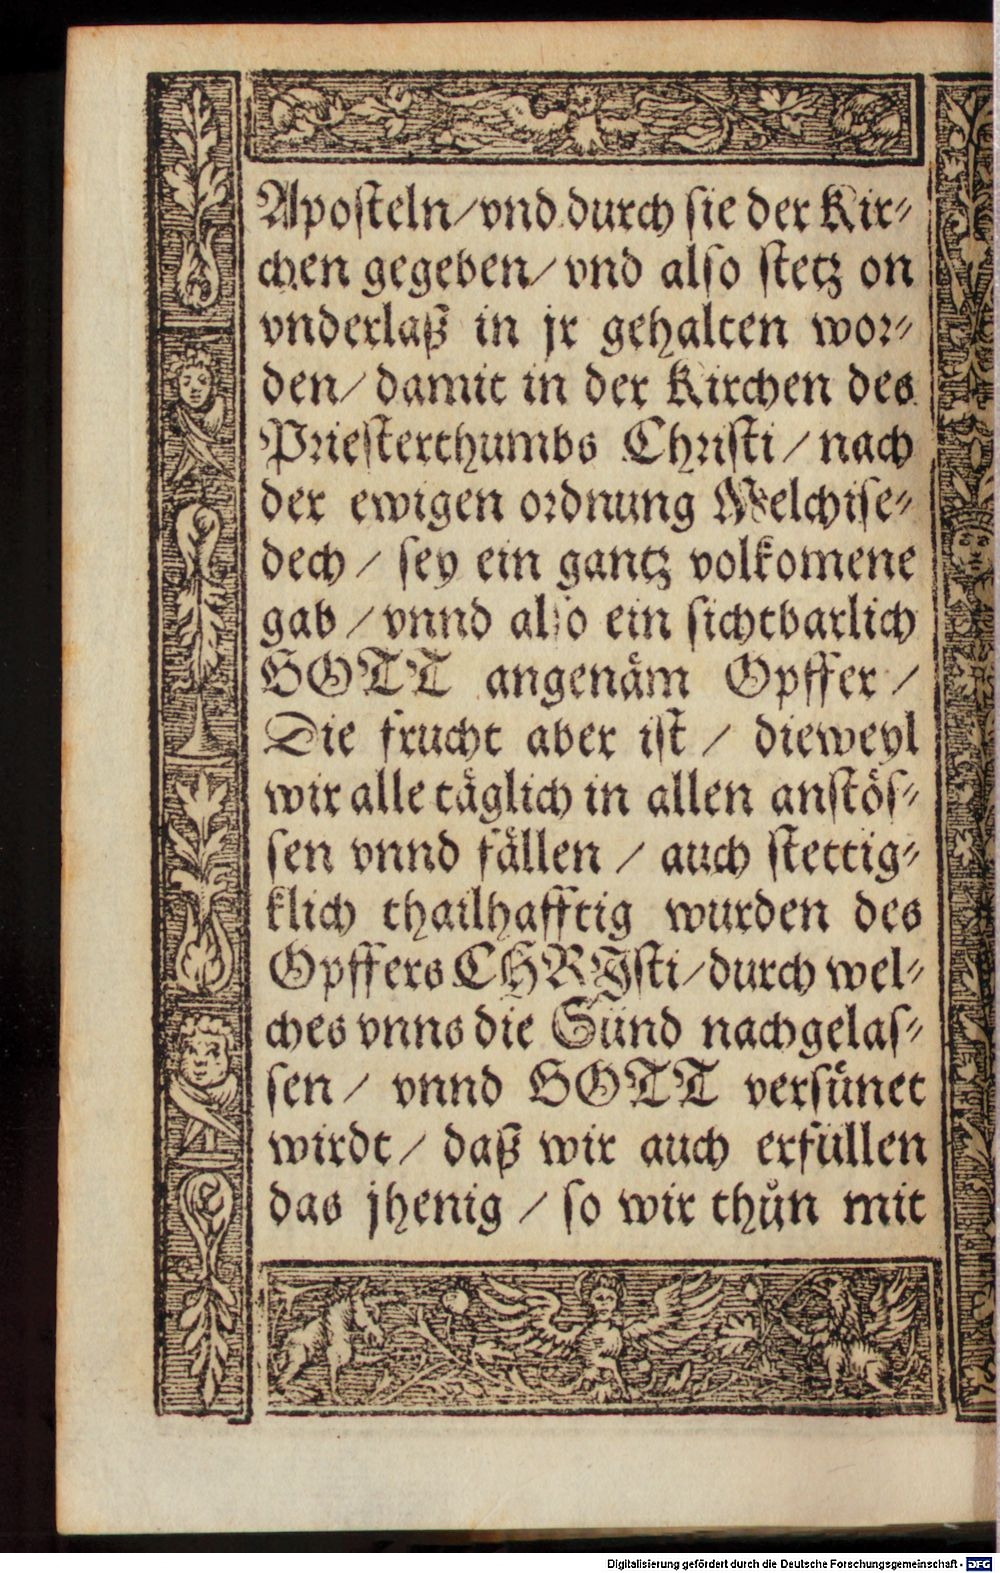 Aposteln/vnd durch sie der Kir⸗
chen gegeben/ vnd also stetz on
vnderlaß in jr gehalten wor⸗
den/ damit in der Kirchen des
Priesterthumbs Christi / nach
der ewigen ordnung Melchise⸗
dech / sey ein gantz volkomene
gab / vnnd also ein sichtbarlich
GOTT angenäm Opffer /
Die frucht aber ist / dieweyl
wir alle täglich in allen anstös⸗
sen vnnd fällen / auch stettig⸗
klich thailhafftig wurden des
Opffers CHRJsti/durch wel⸗
ches vnns die Sünd nachgelas⸗
sen / vnnd GOTT versünet
wirdt / daß wir auch erfüllen
das jhenig / so wir thůn mit
Digitalisierung gefördert durch die Deutsche Forschungsgemeinschaft - DFG